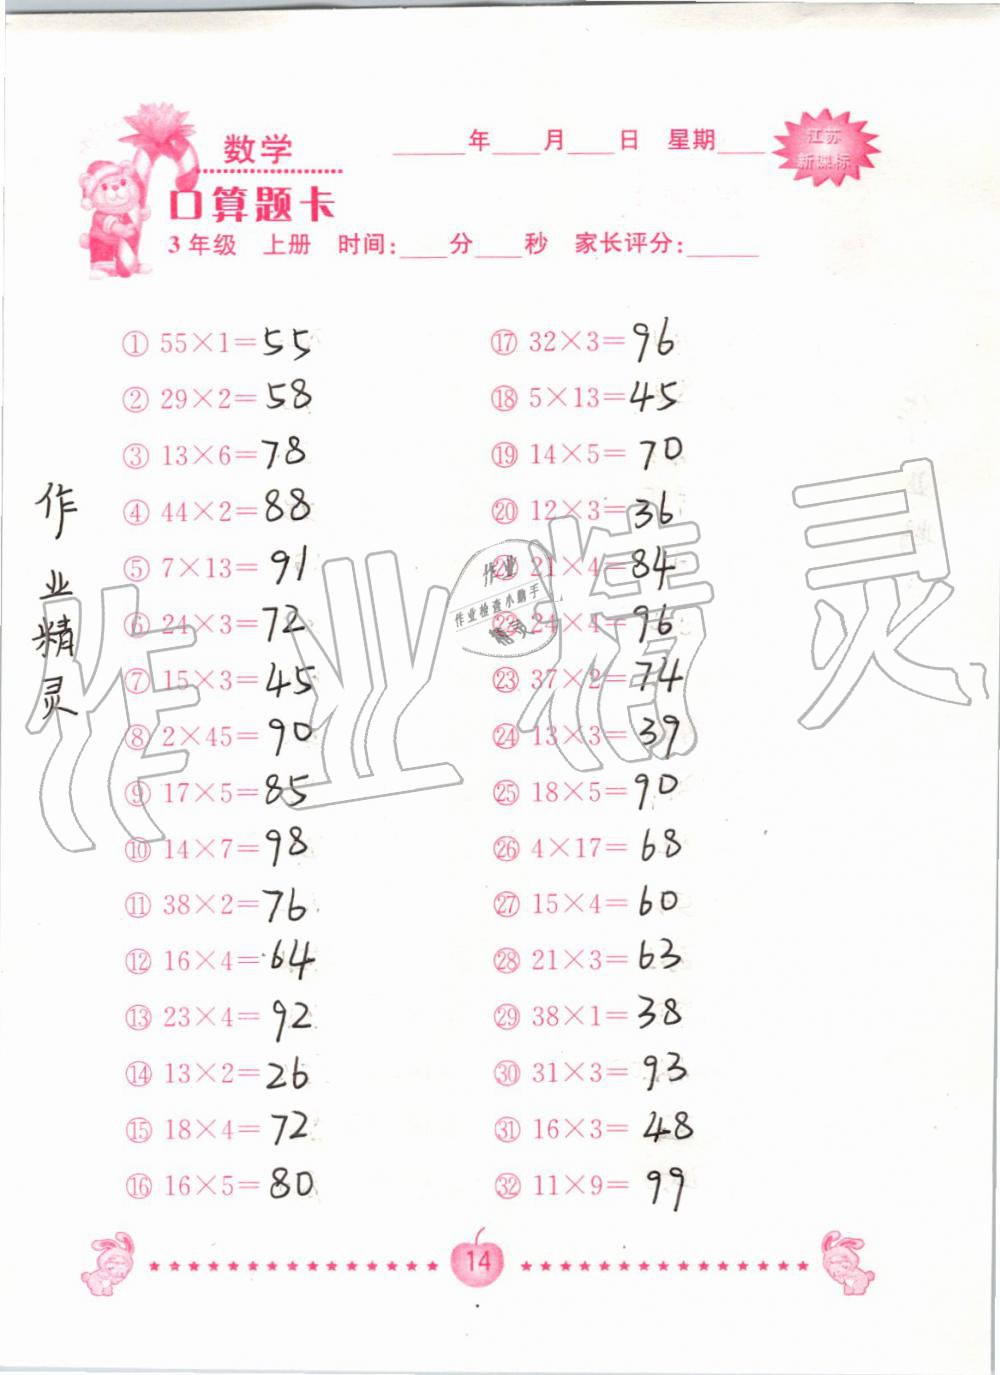 数学
____年____月____日 星期____
江苏
新课标
口算题卡
3年级 上册 时间:____分____秒 家长评分:____
① 55×1=55
② 29×2=58
③ 13×6=78
④ 44×2=88
⑤ 7×13=91
⑥ 24×3=72
⑦ 15×3=45
⑧ 2×45=90
⑨ 17×5=85
⑩ 14×7=98
⑪ 38×2=76
⑫ 16×4=64
⑬ 23×4=92
⑭ 13×2=26
⑮ 18×4=72
⑯ 16×5=80
⑰ 32×3=96
⑱ 5×13=45
⑲ 14×5=70
⑳ 12×3=36
㉑ 21×4=84
㉒ 24×4=96
㉓ 37×2=74
㉔ 13×3=39
㉕ 18×5=90
㉖ 4×17=68
㉗ 15×4=60
㉘ 21×3=63
㉙ 38×1=38
㉚ 31×3=93
㉛ 16×3=48
㉜ 11×9=99
作业精灵
作业精灵
作业
作业检查小助手
精灵
14